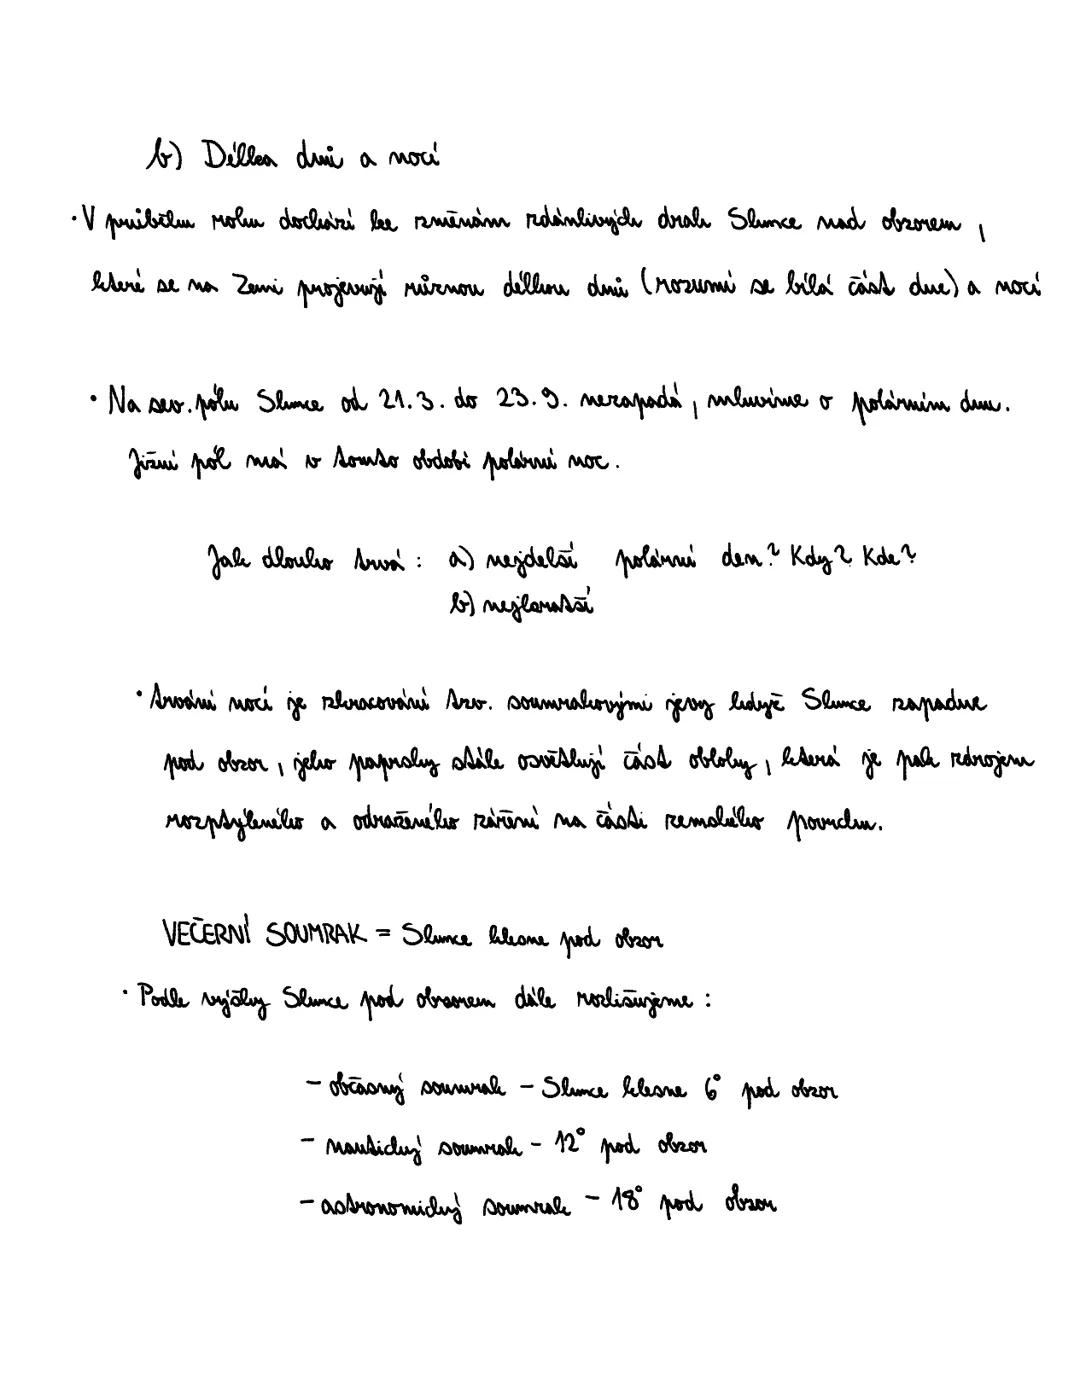 b) Délka dnů a nocí
· V průběhu roku dochází ke změnám zdánlivých drah Slunce nad obzorem,
které se na Zemi projevují různou délkou dnů (rozumí se bílá část dne) a nocí
· Na sev. pólu Slunce od 21.3. do 23.9. nezapadá, mluvíme o polárním dnu.
Jižní pól má v tomto období polární noc.
Jak dlouho trvá: a) nejdelší polární den? Kdy? Kde?
b) nejkratší
· trvání nocí je zkracování tzv. soumrakovými jevy když Slunce zapadne
pod obzor, jeho paprsky stále osvětlují část oblohy, která je pak zdrojem
rozptýleného a odraženého záření na části zemského povrchu.
VEČERNÍ SOUMRAK = Slunce klesne pod obzor
· Podle výšky Slunce pod obzorem dále rozlišujeme:
- občasný soumrak - Slunce klesne 6° pod obzor
- nautický soumrak - 12° pod obzor
- astronomický soumrak - 18° pod obzor